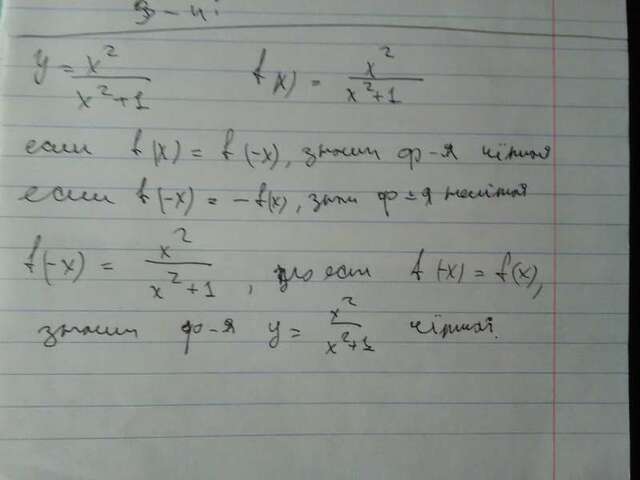 y = x²/(x²+1) f(x) = x²/(x²+1)
если f(x) = f(-x), значит ф-я чётная
если f(-x) = -f(x), знач ф-я нечётная
f(-x) = x²/(x²+1), то есть f(-x) = f(x),
значит ф-я y = x²/(x²+1) чётная.